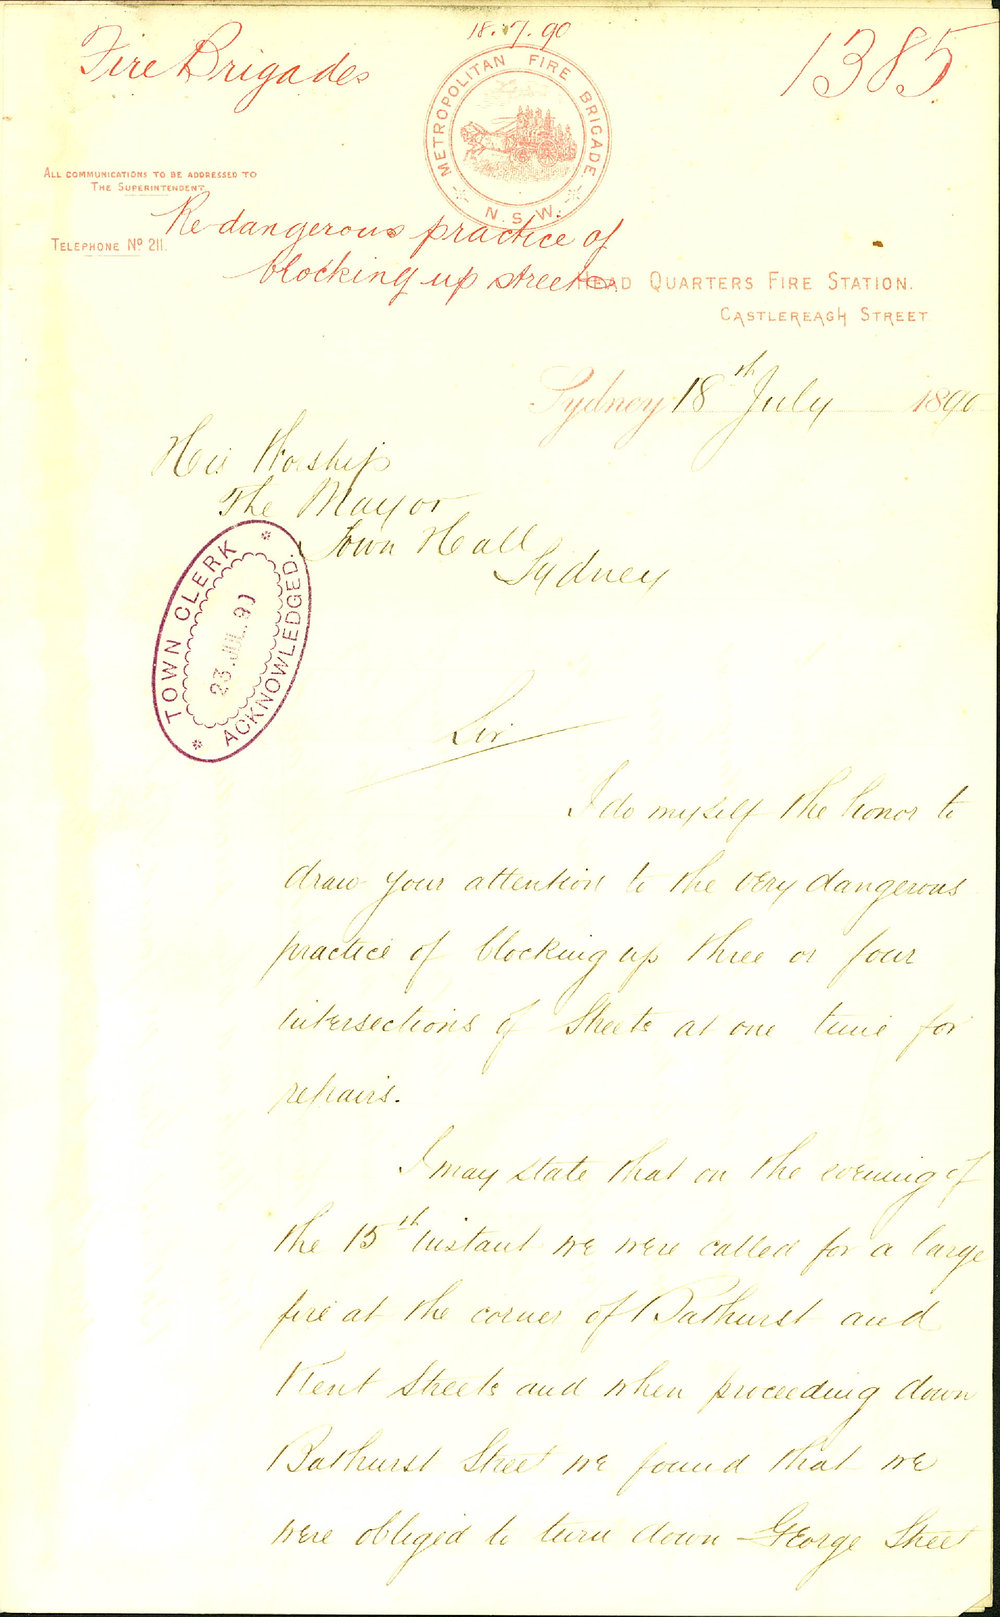 18.7.90
Fire Brigades
1385
METROPOLITAN FIRE BRIGADE.
N.S.W.
ALL COMMUNICATIONS TO BE ADDRESSED TO
THE SUPERINTENDENT.
TELEPHONE No 211.
Re dangerous practice of
blocking up streets
HEAD QUARTERS FIRE STATION.
CASTLEREAGH STREET
Sydney 18th July 1890
His Worship
The Mayor
Town Hall
Sydney
TOWN CLERK
23. JUL. 90
ACKNOWLEDGED.
Sir
I do myself the honor to
draw your attention to the very dangerous
practice of blocking up three or four
intersections of Streets at one time for
repairs.
I may state that on the evening of
the 15th instant we were called for a large
fire at the corner of Bathurst and
Kent Streets and when proceeding down
Bathurst Street we found that we
were obliged to turn down George Street